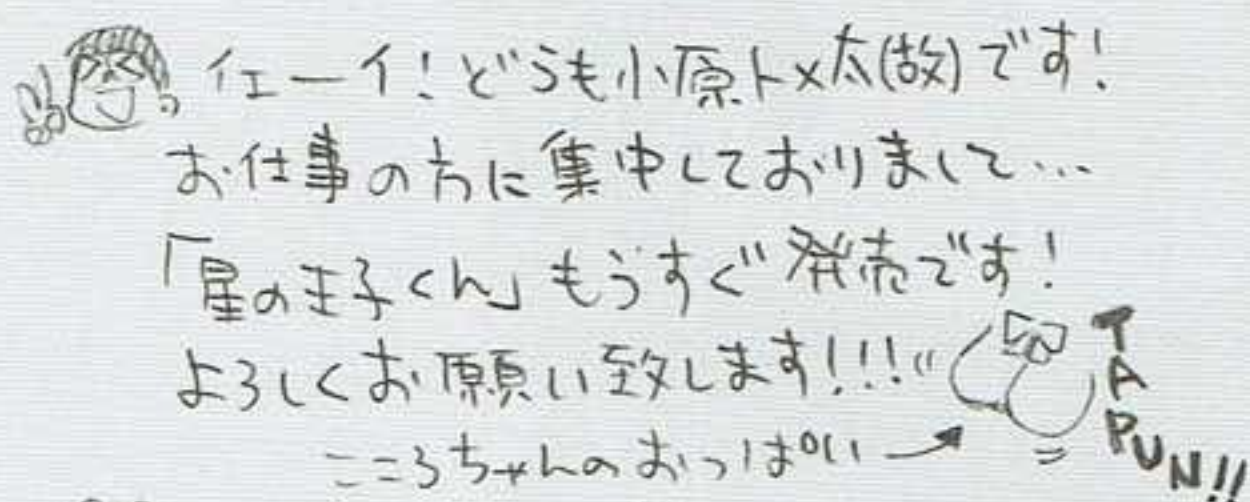 イェーイ!どうも小原トメ太(故)です!
お仕事の方に集中しておりまして…
「星の王子くん」もうすぐ発売です!
よろしくお願い致します!!!
こころちゃんのおっぱい
TAPUN!!